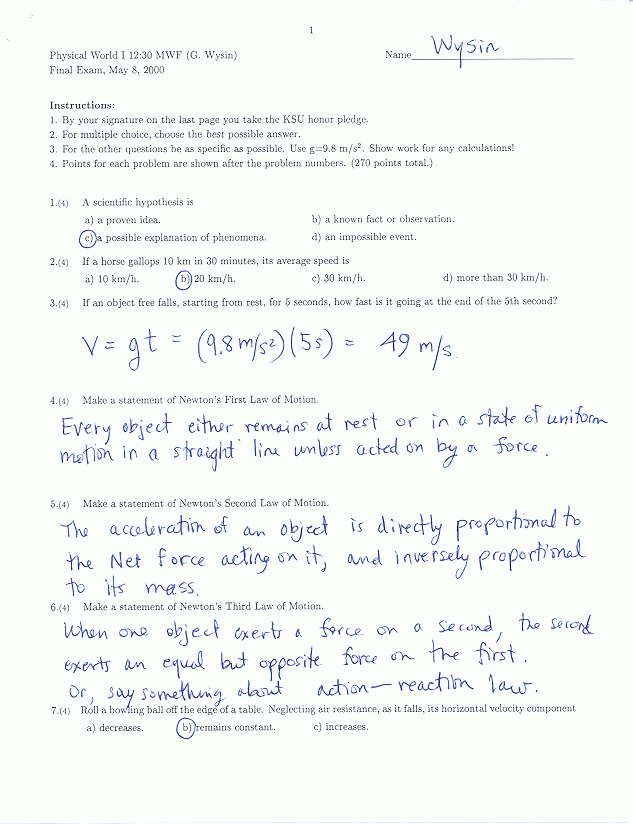 1
Physical World I 12:30 MWF (G. Wysin) Name Wysin
Final Exam, May 8, 2000
Instructions:
1. By your signature on the last page you take the KSU honor pledge.
2. For multiple choice, choose the best possible answer.
3. For the other questions be as specific as possible. Use g=9.8 m/s². Show work for any calculations!
4. Points for each problem are shown after the problem numbers. (270 points total.)
1.(4) A scientific hypothesis is
a) a proven idea. b) a known fact or observation.
c) a possible explanation of phenomena. d) an impossible event.
2.(4) If a horse gallops 10 km in 30 minutes, its average speed is
a) 10 km/h. b) 20 km/h. c) 30 km/h. d) more than 30 km/h.
3.(4) If an object free falls, starting from rest, for 5 seconds, how fast is it going at the end of the 5th second?
V = gt = (9.8 m/s²)(5s) = 49 m/s.
4.(4) Make a statement of Newton's First Law of Motion.
Every object either remains at rest or in a state of uniform
motion in a straight line unless acted on by a force.
5.(4) Make a statement of Newton's Second Law of Motion.
The acceleration of an object is directly proportional to
the Net force acting on it, and inversely proportional
to its mass.
6.(4) Make a statement of Newton's Third Law of Motion.
When one object exerts a force on a second, the second
exerts an equal but opposite force on the first.
Or, say something about action-reaction law.
7.(4) Roll a bowling ball off the edge of a table. Neglecting air resistance, as it falls, its horizontal velocity component
a) decreases. b) remains constant. c) increases.